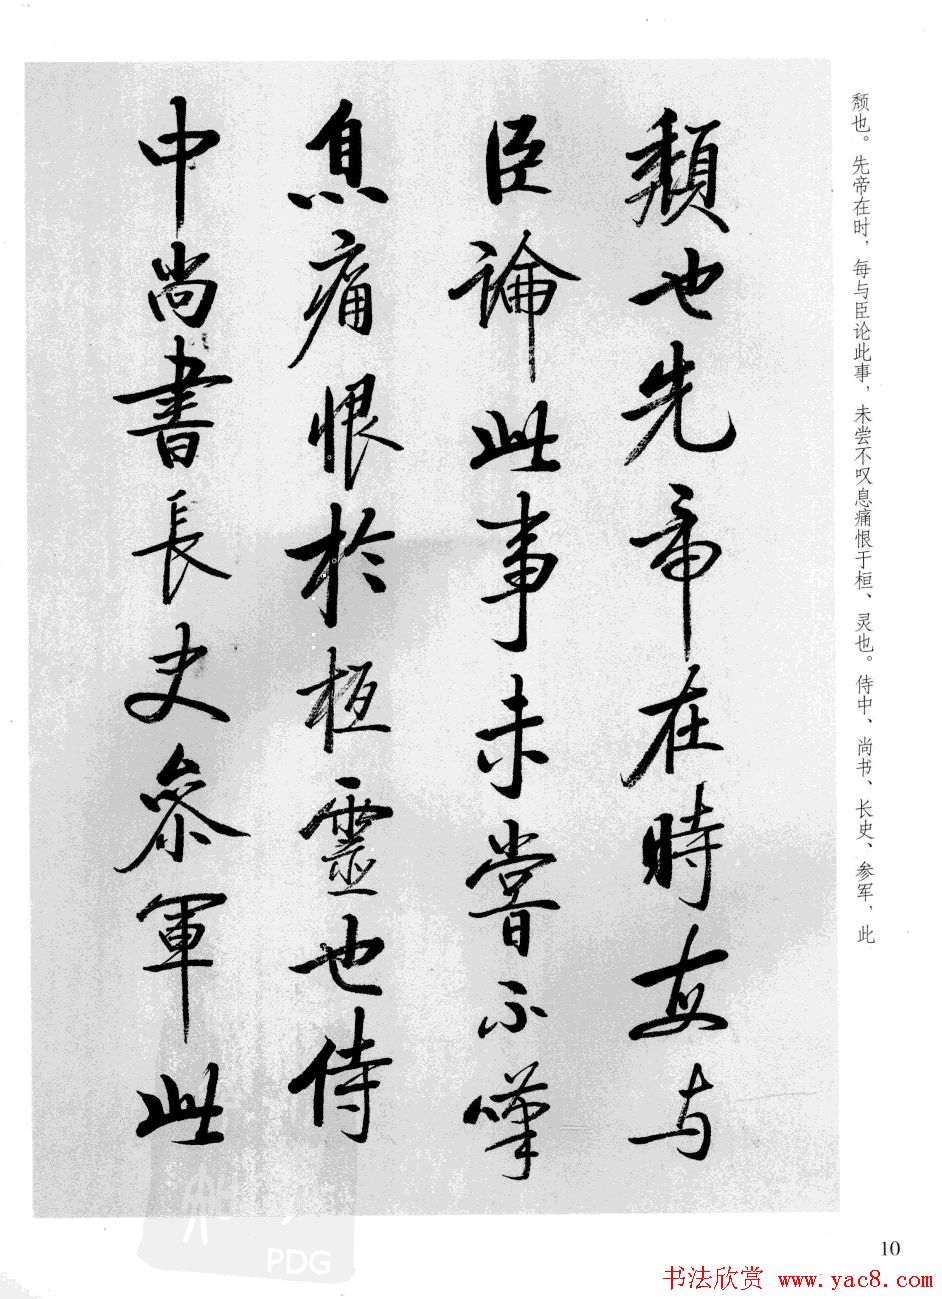 颓也。先帝在时，每与臣论此事，未尝不叹息痛恨于桓、灵也。侍中、尚书、长史、参军，此
頽也先帝在時每与
臣論此事未嘗不嘆
息痛恨於桓靈也侍
中尚書長史參軍此
PDG
10
书法欣赏 www.yac8.com